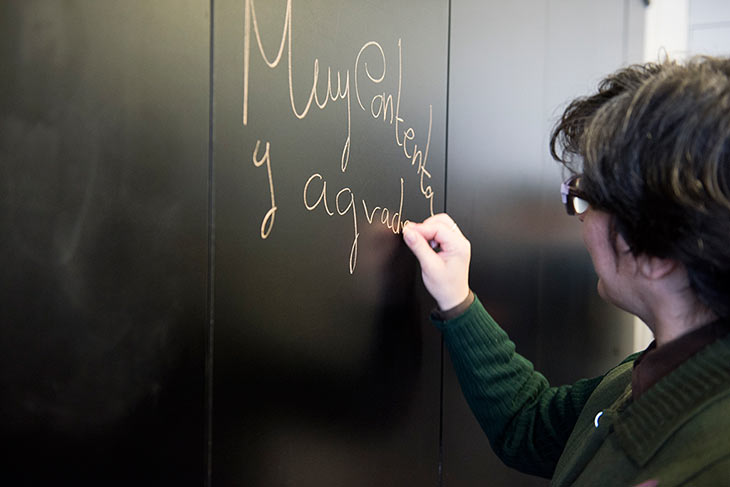 Muy Contenta
y agrade